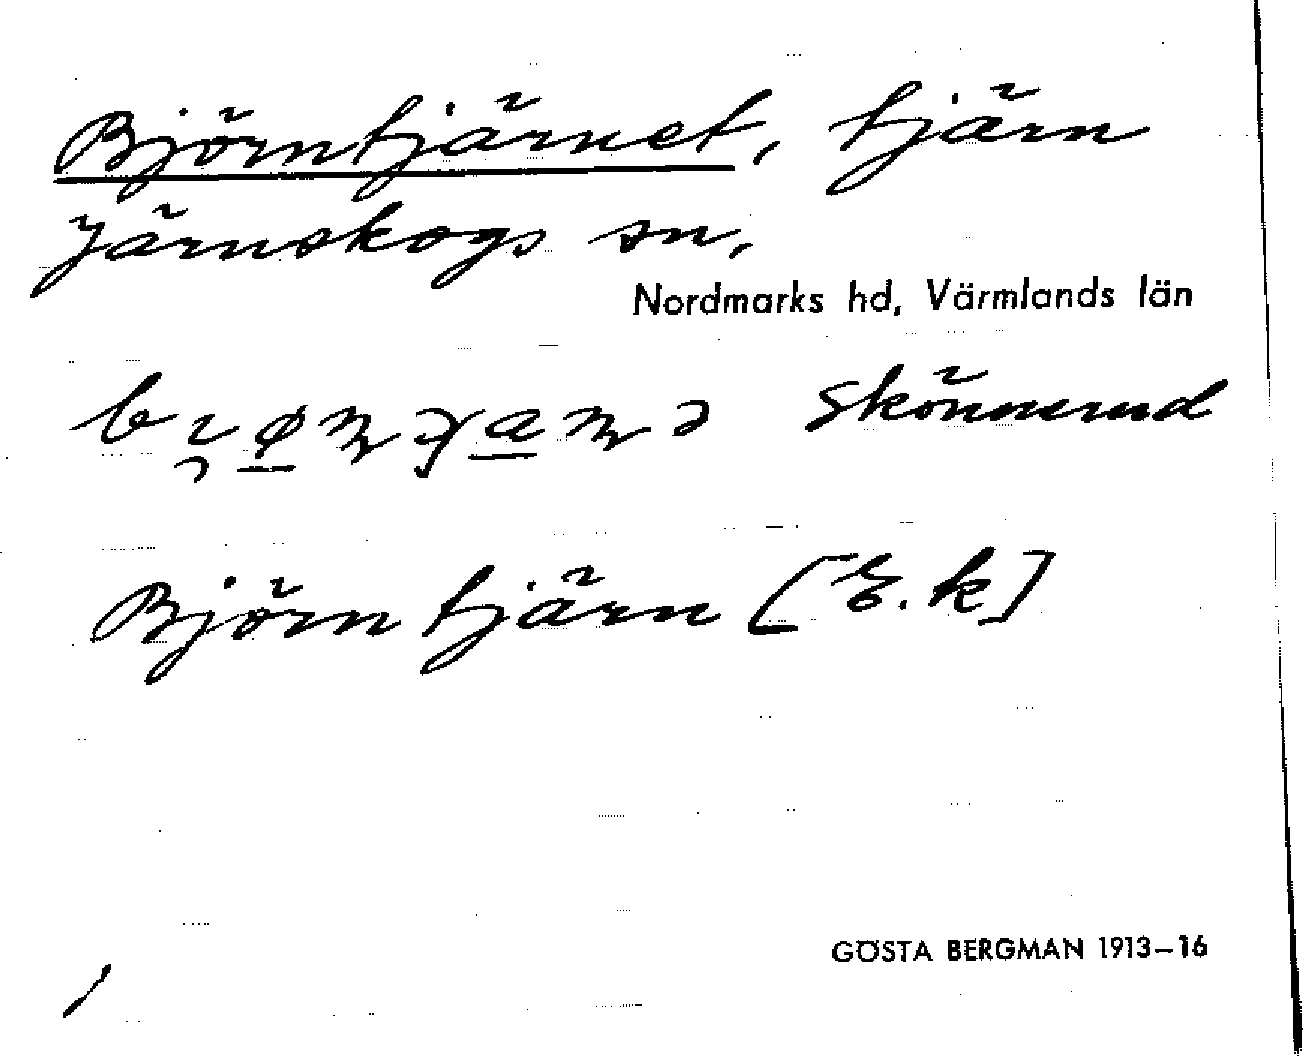 Björntjärnet, tjärn
Järnskogs sn,
Nordmarks hd, Värmlands län
Skönnerud
Björntjärn [E.k]
GÖSTA BERGMAN 1913–16